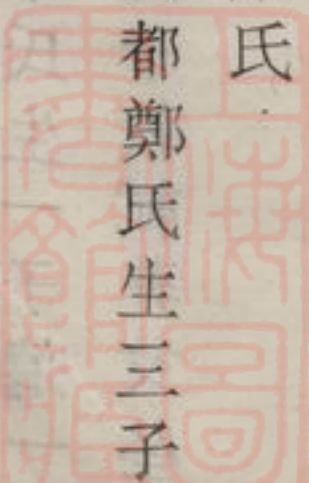 氏
都鄭氏生三子